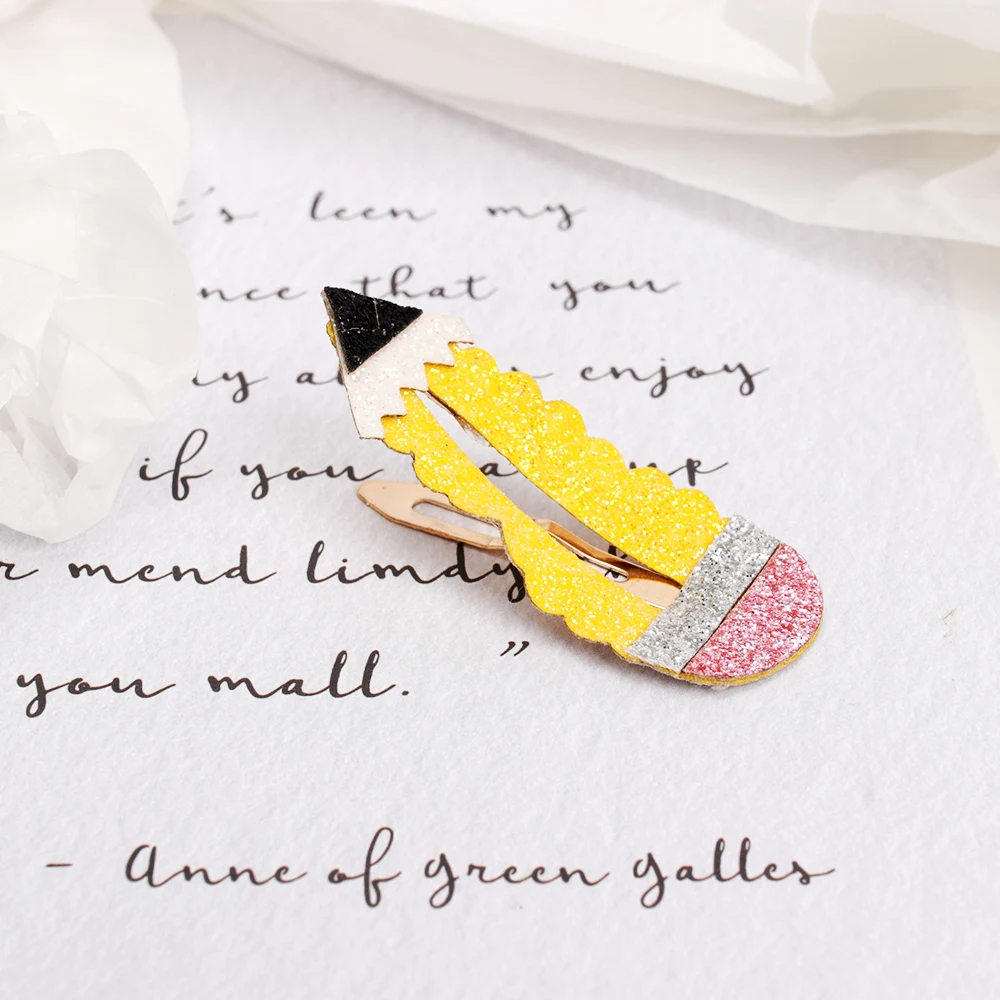 's leen my
nce that you
enjoy
if you up
r mend limdy
you mall. ”
- Anne of green galles